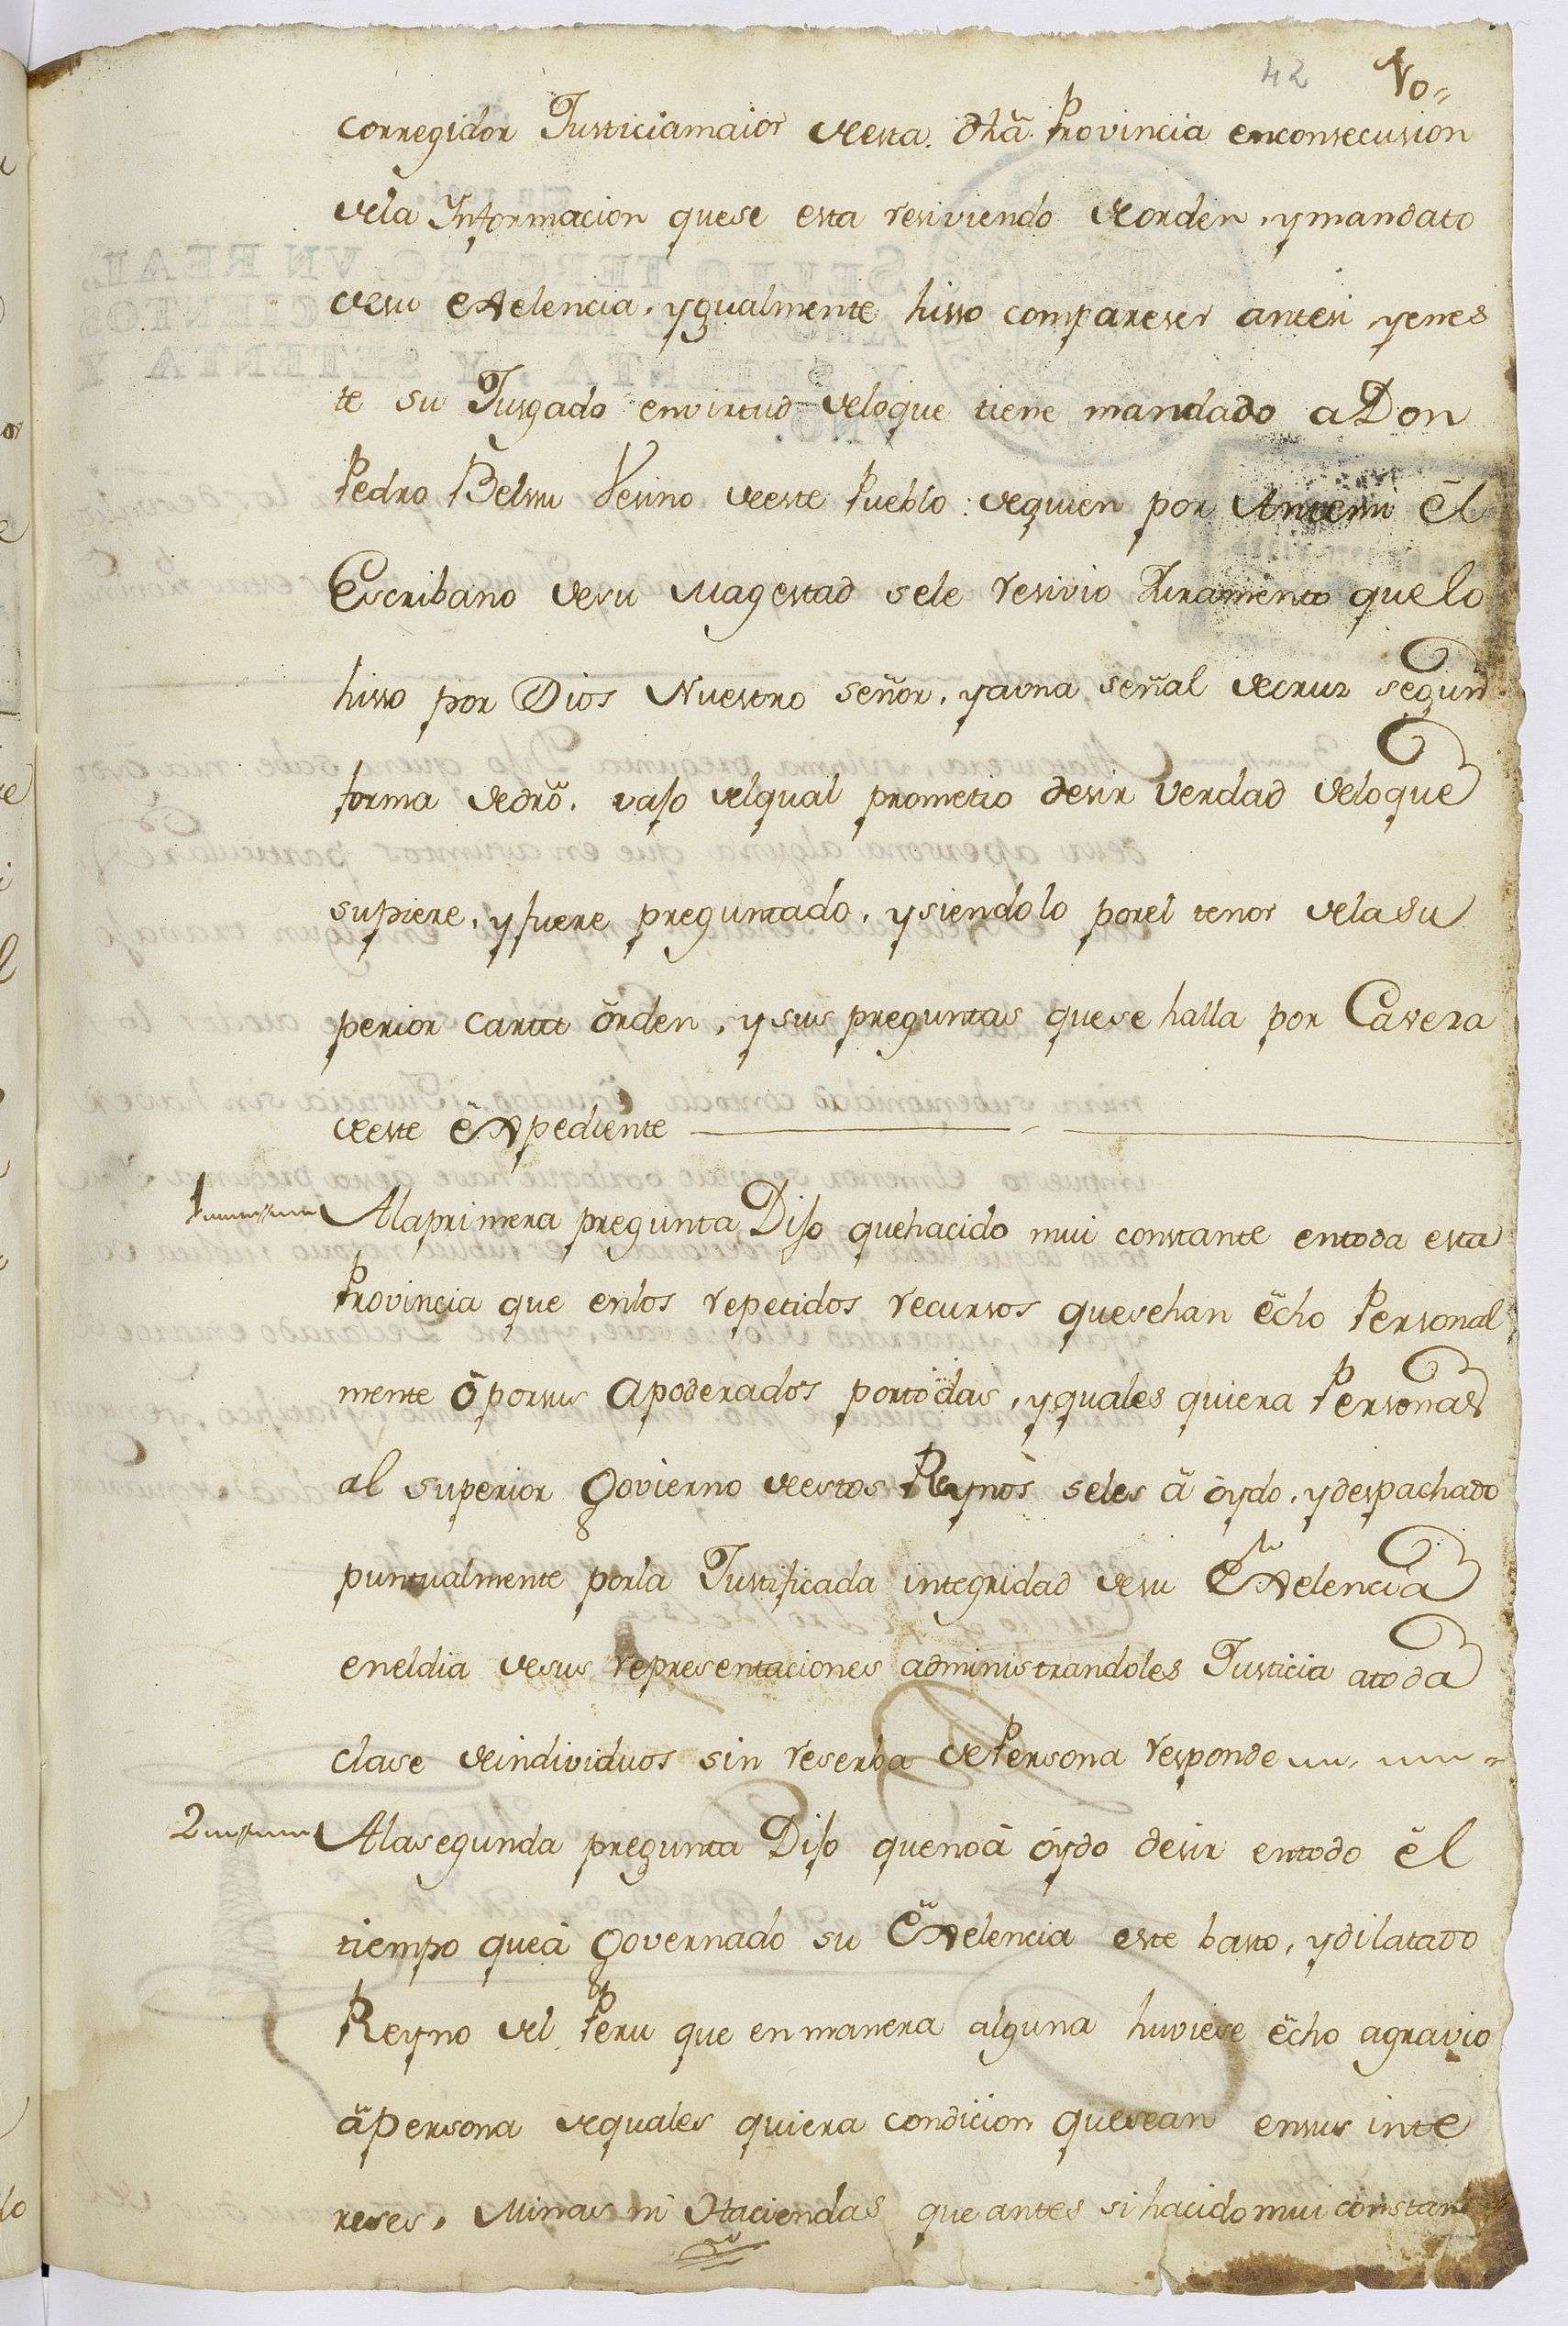 42 Vo=
corregidor Justiciamaior deesta dha Provincia enconsecusion
dela Informacion quese esta resiviendo deorden, ymandato
desu exelencia, ygualmente hisso compareser antesi yenes
te su Jusgado envirtud deloque tiene mandado aDon
Pedro Belsu Vesino deeste Pueblo dequien por Antemi él
Escribano desu Magestad sele resivio Juramento quelo
hisso por Dios Nuestro señor, yauna señal decruz según
forma dedro. vajo delqual prometio desir verdad deloque
supiere, yfuere preguntado, ysiendolo porel tenor delasu
perior carta órden, ysus preguntas quese halla por Cavesa
deeste éxpediente
1 Alaprimera pregunta Dijo quehacido mui constante entoda esta
Provincia que enlos repetidos recursos quesehan ẽcho Personal
mente ó porsus apoderados portodas, yquales quiera Personas
al superior Govierno deestos Reynos seles á óydo, ydespachado
puntualmente porla Justificada integridad desu Exelencia
eneldia desus representaciones administrandoles Justicia atoda
clase deindividuos sin reserba dePersona responde
2 Alasegunda pregunta Dijo quenoá óydo desir entodo él
tiempo queá Governado su Exelencia este basto, ydilatado
Reyno del Peru que enmanera alguna huviese ẽcho agravio
ápersona dequales quiera condicion quesean ensus inte
reses, Minas ni Haciendas que antes si hacidomui constan